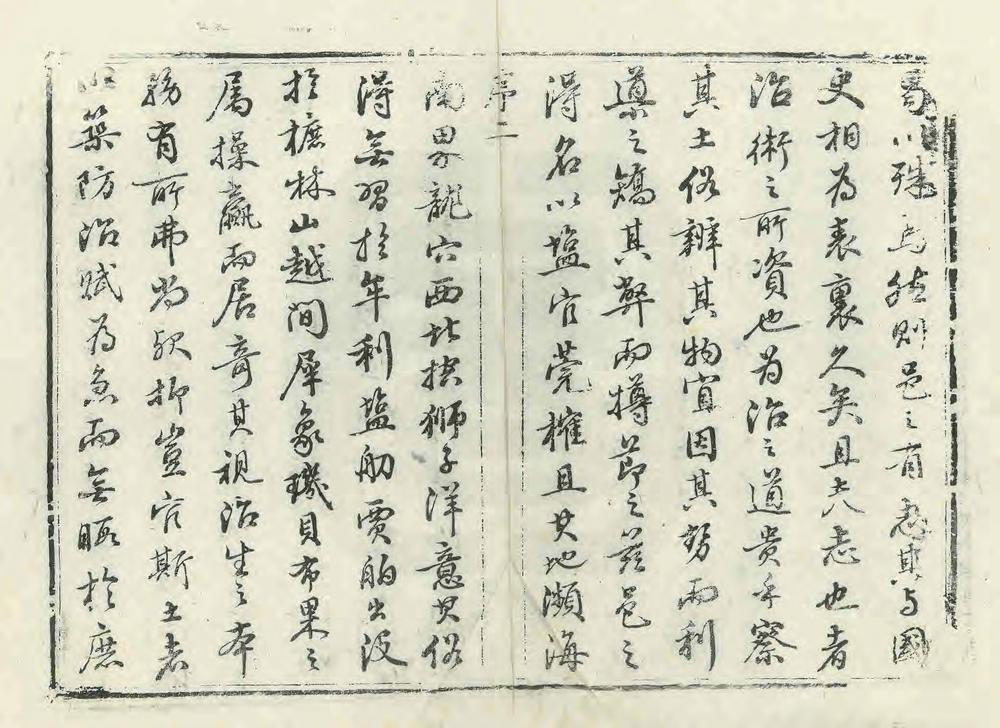 葛以殊焉然則邑之有志其与國
史相為表裏久矣且夫志也者
治術之所資也為治之道貴乎察
其土俗辨其物宜因其勢而利
導之矯其弊而撙節之茲邑之
得名以塩官筦榷且其地瀕海
序二
南界龍穴西北控獅子洋意其俗
得無習於牟利塩舠賈舶出没
於樜林山越間犀象璣貝布果之
属操贏而居奇其視治生之本
務有所弗尚歟抑豈官斯土者
以築防治賦為急而無暇於庶